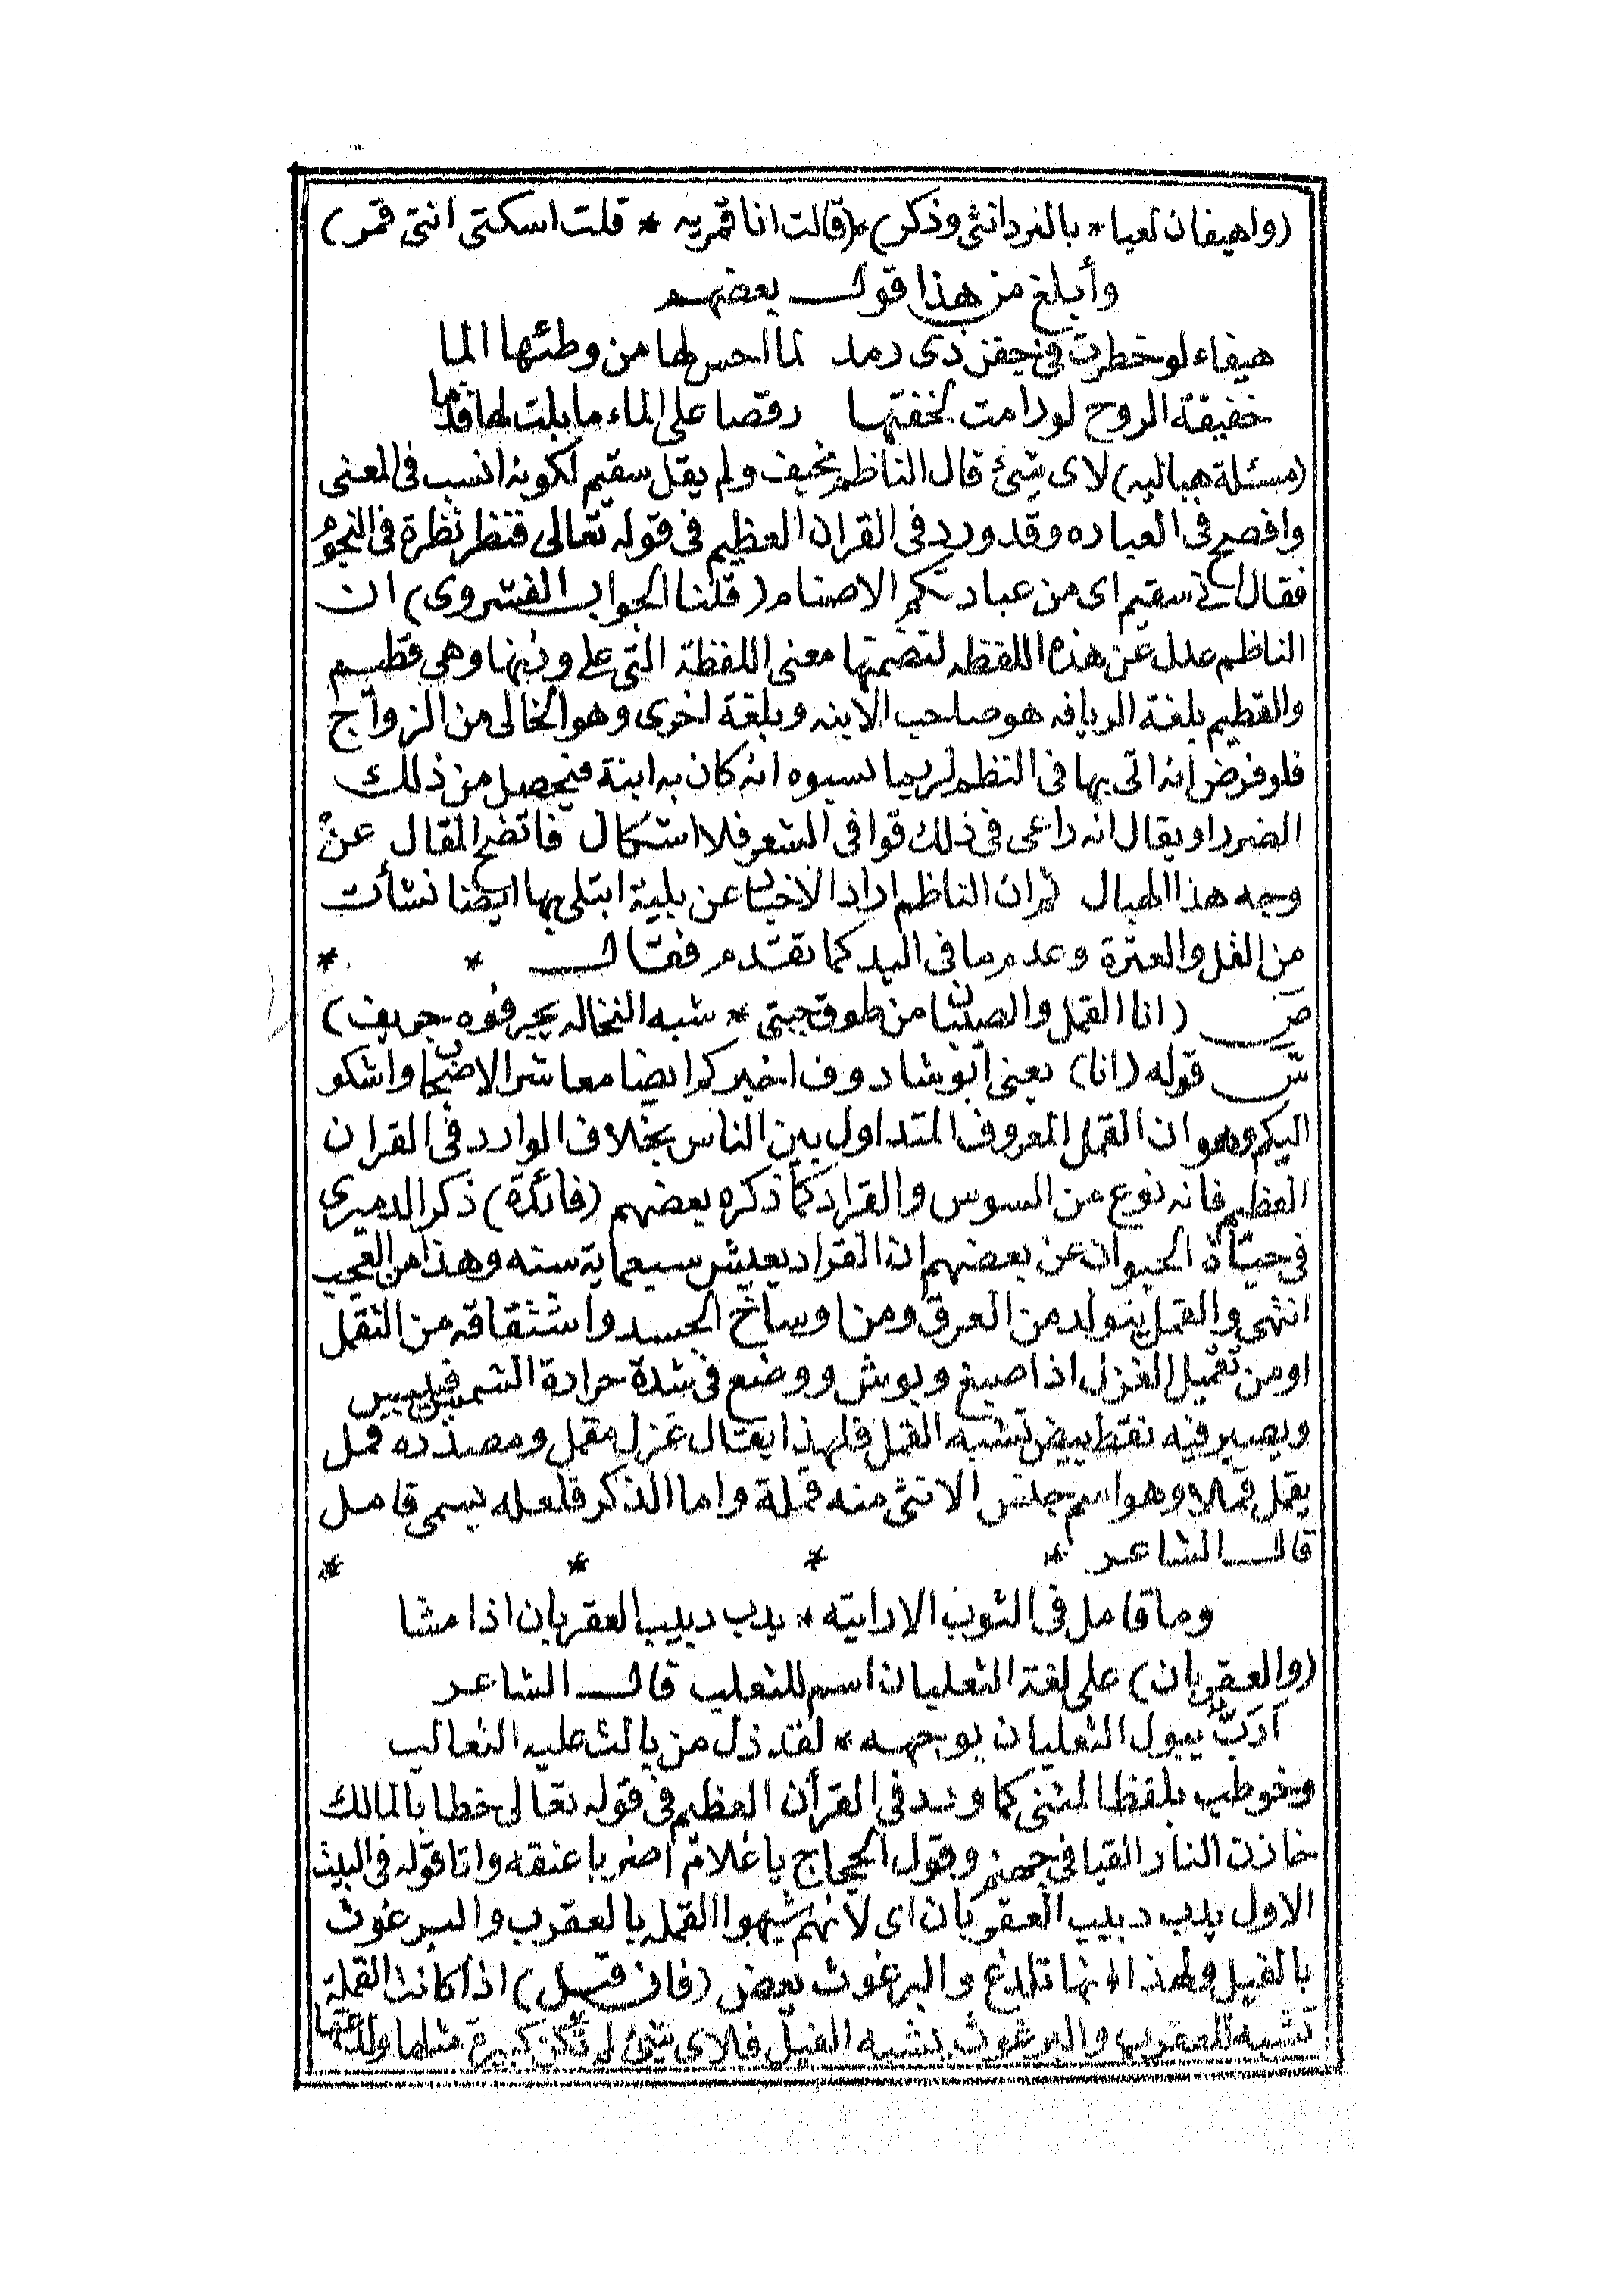 (واهيفان لعبا * بالنرد انثى وذكر) * (قالت انا قمريه * قلت اسكتى انتى قمر)
وأبلغ من هذا قول بعضهم
هيفاء لو خطرت في جفن ذى رمد لما احس لها من وطئها الما
خفيفة الروح لو رامت لخفتها رقصا على الماء ما بلت لها قدما
(مسئلة هباليه) لاى شئ قال الناظم نحيف ولم يقل سقيم لكونه انسب فى المعنى
وافصح فى العباره وقد ورد فى القران العظيم فى قوله تعالى فنظر نظرة فى النجوم
فقال انى سقيم اى من عبادتكم الاصنام (قلنا الجواب الفشروى) ان
الناظم عدل عن هذه اللفظه لتضمنها معنى اللفظة التى على وزنها وهى قطيم
والقطيم بلغة الريافه هو صاحب الابنه وبلغة اخرى وهو الخالى من الزواج
فلو فرض انه اتى بها فى النظم لربما نسبوه انه كان به ابنة فيحصل من ذلك
الضرر او يقال انه راعى فى ذلك قوافى الشعر فلا اشكال فاتضح المقال عن
وجه هذا الهبال ثم ان الناظم اراد الاخبار عن بلية ابتلى بها ايضا نشأت
من القل والعترة وعدم ما فى اليد كما تقدم فقال * *
ص (انا القمل والصيبان من طوق جبتى * شبه النخاله يجرفوه جريف)
ش قوله (انا) يعنى ابو شادوف اخبركم ايضا معاشر الاصحاب واشكو
اليكم وهو ان القمل المعروف المتداول بين الناس بخلاف الوارد فى القران
العظيم فانه نوع من السوس والقراد كما ذكره بعضهم (فائدة) ذكر الدميرى
فى حياة الحيوان عن بعضهم ان القراد يعيش سبعماية سنه وهذا من العجب
انتهى والقمل يتولد من العرق ومن اوساخ الجسد واشتقاقه من التقمل
او من تقميل الغزل اذا صبغ وبوش ووضع فى شدة حرارة الشمس فييبس
ويصير فيه نقط بيض تشبه القمل فلهذا يقال غزل مقمل ومصدره قمل
يقمل قملا وهو اسم جنس الانثى منه قملة واما الذكر فلعله يسمى قامل
قال الشاعر * * * *
وما قامل فى الثوب الا رايته * يدب دبيب العقربان اذا مشا
(والعقربان) على لغة الثعلبان اسم للثعلب قال الشاعر
أرَبٌّ يبول الثعلبان بوجهه * لقد ذل من بالت عليه الثعالب
وخوطب بلفظ المثنى كما ورد فى القرآن العظيم فى قوله تعالى خطابا لمالك
خازن النار القيا فى جهنم وقول الحجاج يا غلام اضربا عنقه واما قوله فى البيت
الاول يدب دبيب العقربان اى لانهم شبهوا القمله بالعقرب والبرغوث
بالفيل ولهذا انها تلدغ والبرغوث يعض (فان قيل) اذا كانت القملة
تشبه للعقرب والبرغوث يشبه الفيل فلاى شئ لم تكن كبيرة مثلها ولدغتها